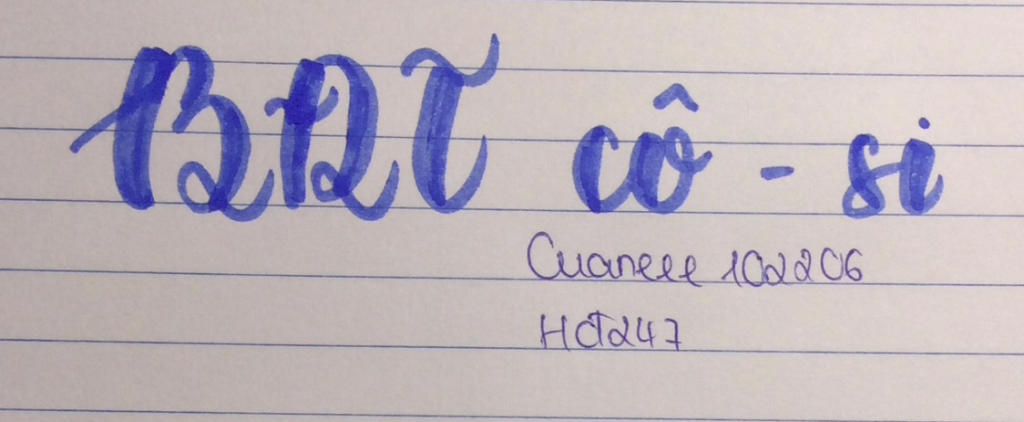 BRT cô - si
Cuaneee 102206
HCT247